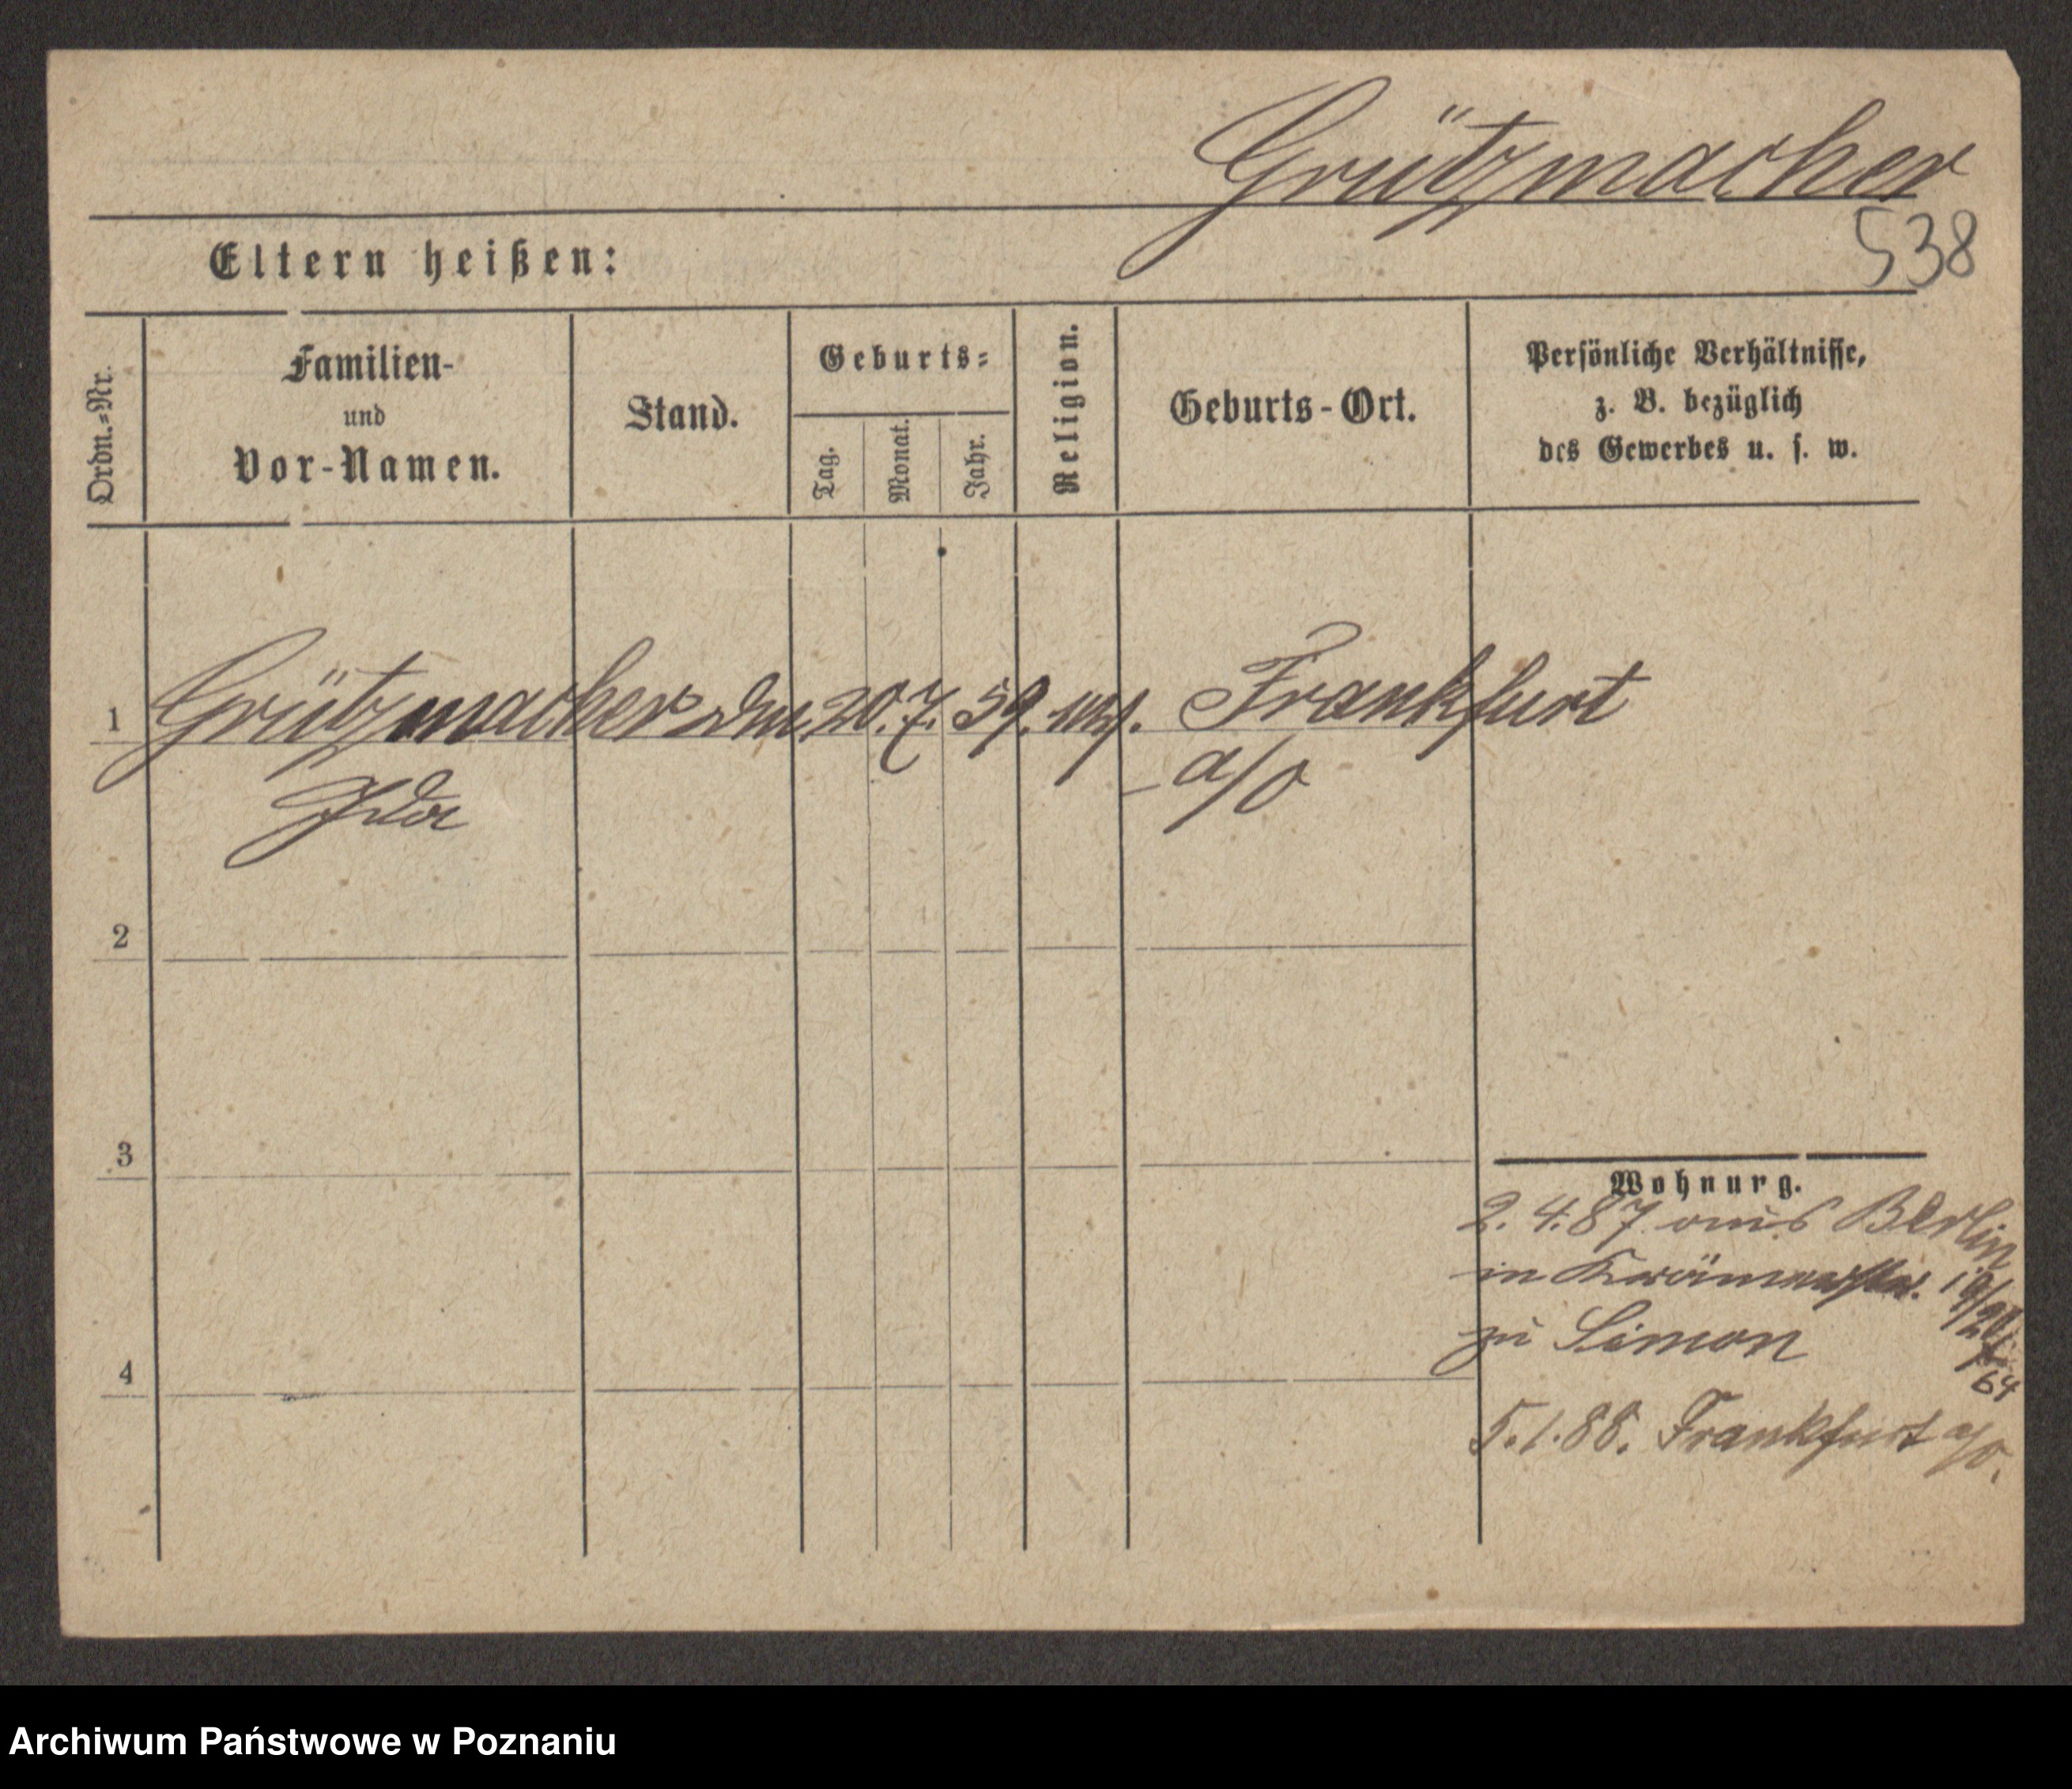 Grützmacher
538
Eltern heißen:
Ordn.=Nr.
Familien-
und
Vor-Namen.
Stand.
Geburts=
Tag.
Monat.
Jahr.
Religion.
Geburts-Ort.
Persönliche Verhältnisse,
z. B. bezüglich
des Gewerbes u. s. w.
1 Grützmacher 20. 7. 59. Frankfurt
Ida a/O
2
3
4
Wohnurg.
2. 4. 87 aus Berlin
in
zu Simon
5. 1. 88. Frankfurt a/O.
Archiwum Państwowe w Poznaniu